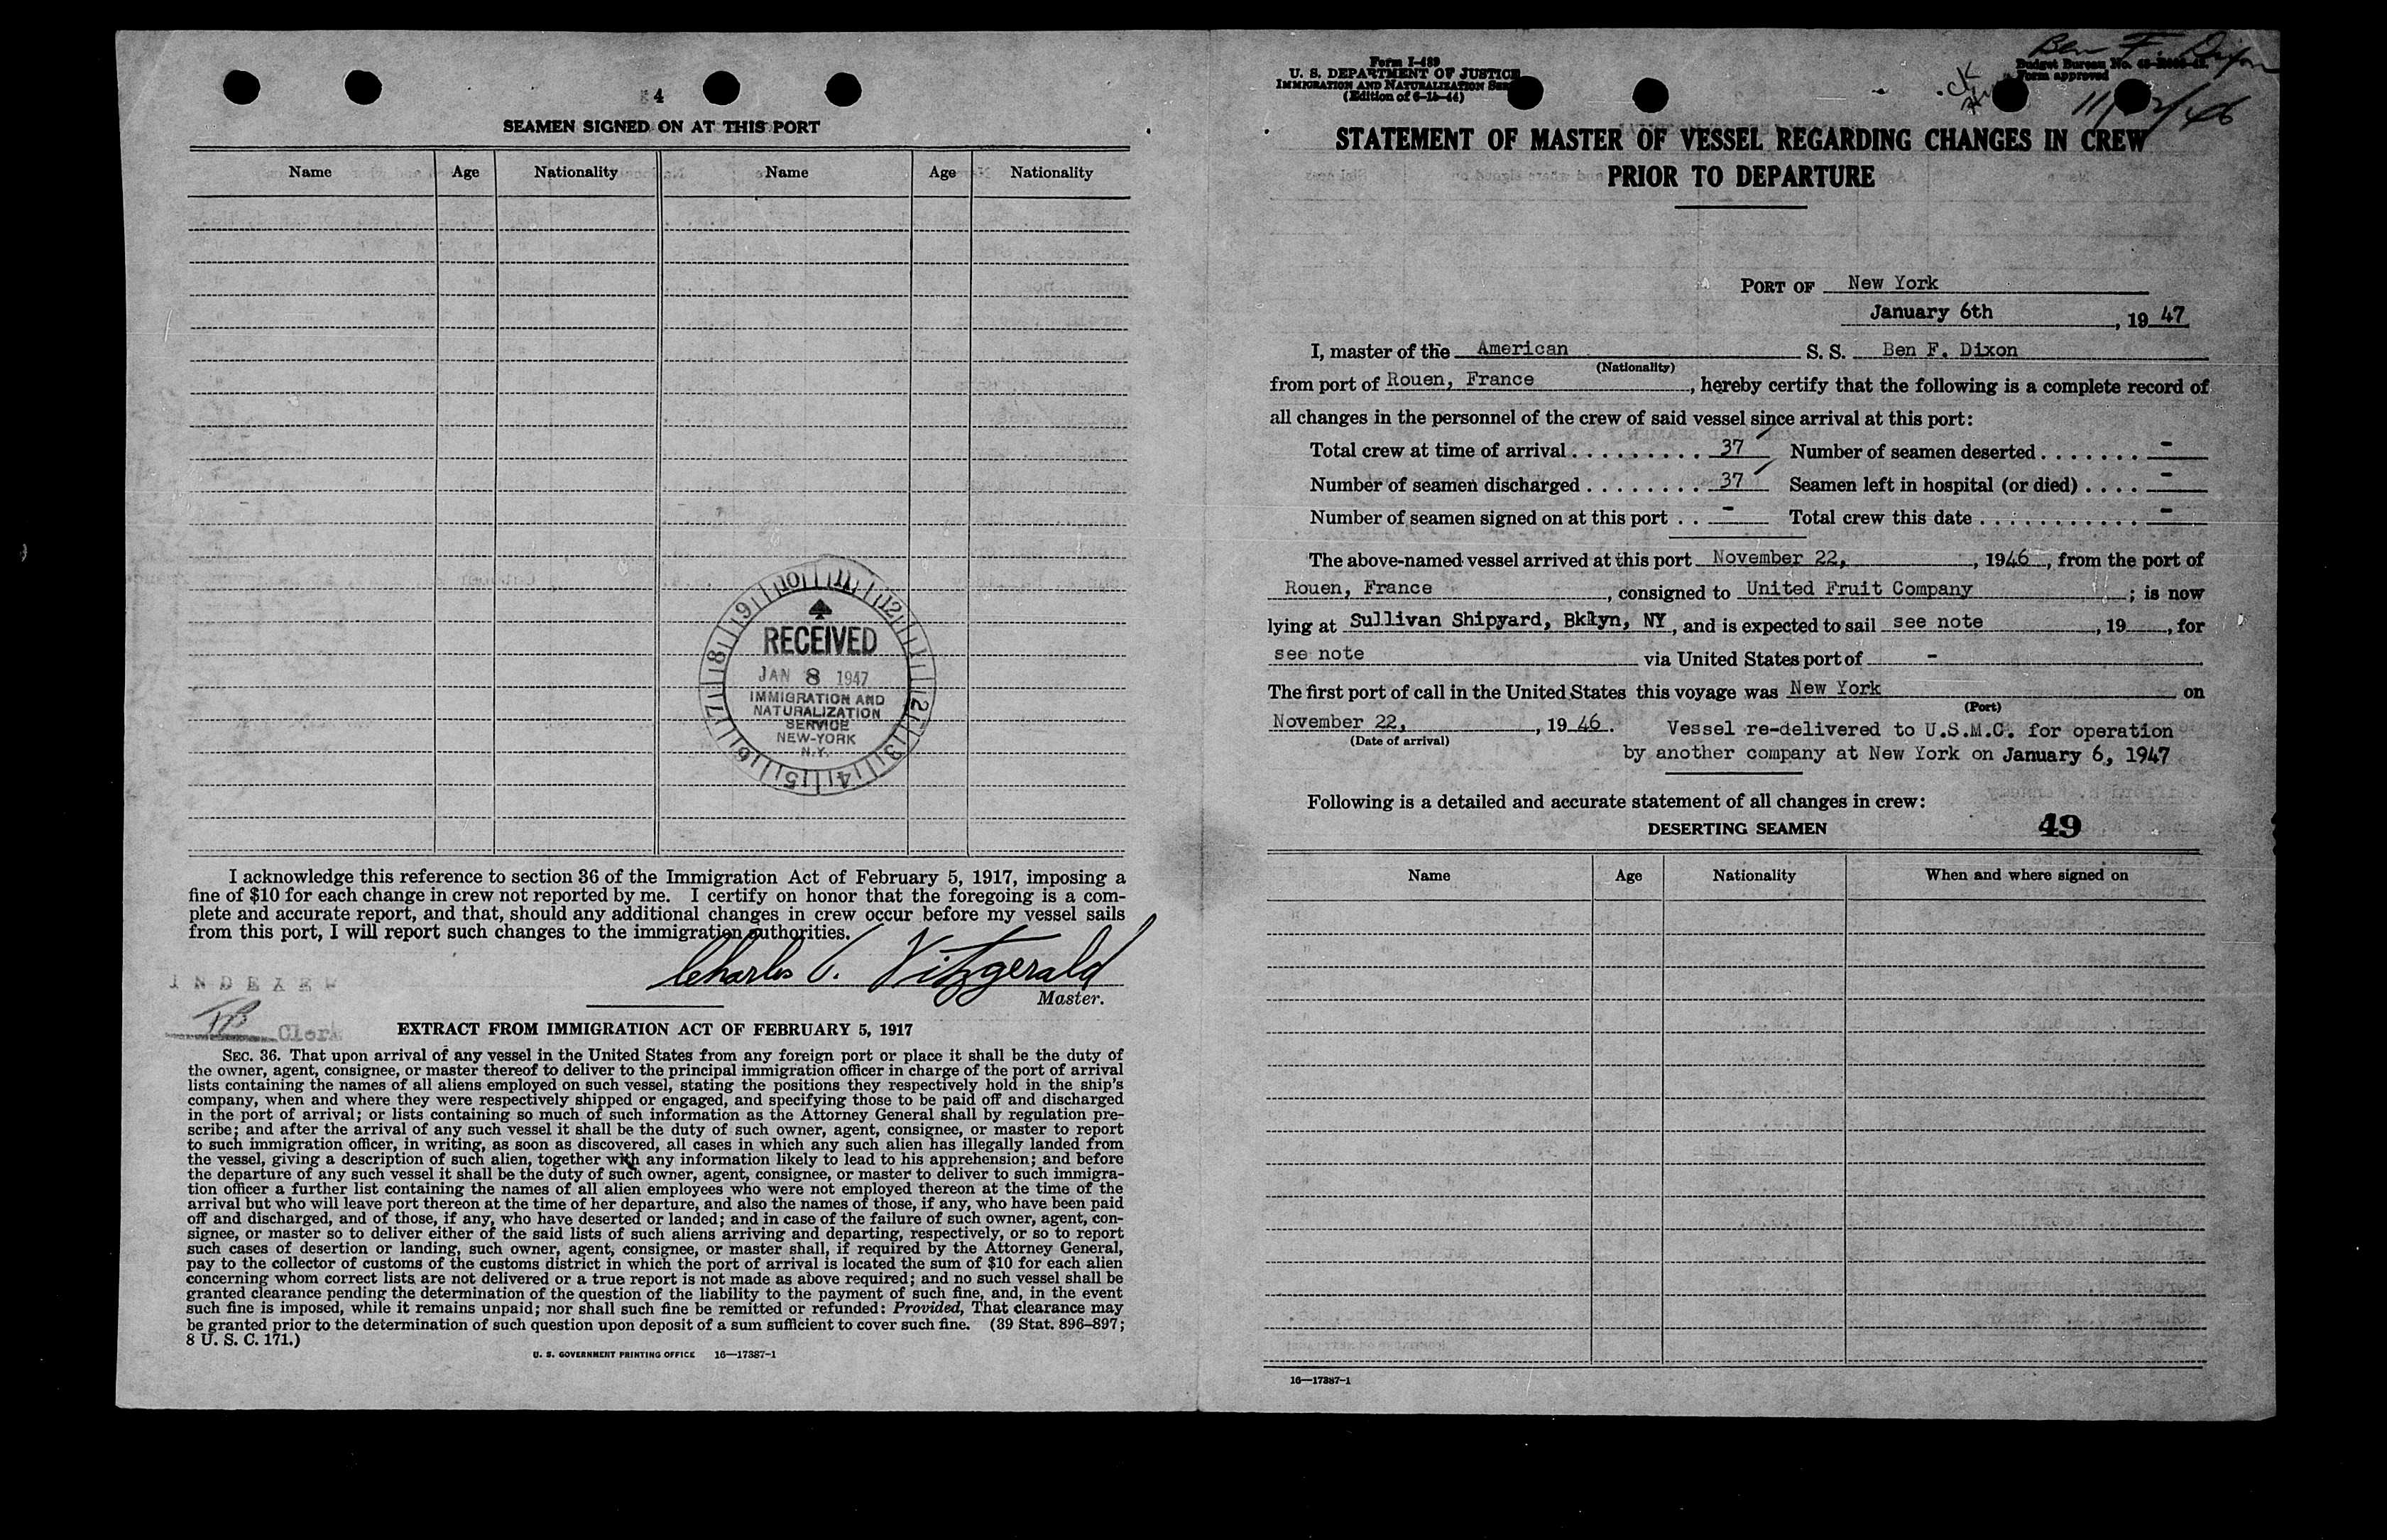 4
SEAMEN SIGNED ON AT THIS PORT
Name Age Nationality Name Age Nationality
10 11 12 1 2 3 4 5 6 7 8 9
RECEIVED
JAN 8 1947
IMMIGRATION AND
NATURALIZATION
SERVICE
NEW-YORK
N.Y.
I acknowledge this reference to section 36 of the Immigration Act of February 5, 1917, imposing a
fine of $10 for each change in crew not reported by me. I certify on honor that the foregoing is a com-
plete and accurate report, and that, should any additional changes in crew occur before my vessel sails
from this port, I will report such changes to the immigration authorities.
Charles V. Fitzgerald
Master.
INDEXED
Clerk
EXTRACT FROM IMMIGRATION ACT OF FEBRUARY 5, 1917
SEC. 36. That upon arrival of any vessel in the United States from any foreign port or place it shall be the duty of
the owner, agent, consignee, or master thereof to deliver to the principal immigration officer in charge of the port of arrival
lists containing the names of all aliens employed on such vessel, stating the positions they respectively hold in the ship's
company, when and where they were respectively shipped or engaged, and specifying those to be paid off and discharged
in the port of arrival; or lists containing so much of such information as the Attorney General shall by regulation pre-
scribe; and after the arrival of any such vessel it shall be the duty of such owner, agent, consignee, or master to report
to such immigration officer, in writing, as soon as discovered, all cases in which any such alien has illegally landed from
the vessel, giving a description of such alien, together with any information likely to lead to his apprehension; and before
the departure of any such vessel it shall be the duty of such owner, agent, consignee, or master to deliver to such immigra-
tion officer a further list containing the names of all alien employees who were not employed thereon at the time of the
arrival but who will leave port thereon at the time of her departure, and also the names of those, if any, who have been paid
off and discharged, and of those, if any, who have deserted or landed; and in case of the failure of such owner, agent, con-
signee, or master so to deliver either of the said lists of such aliens arriving and departing, respectively, or so to report
such cases of desertion or landing, such owner, agent, consignee, or master shall, if required by the Attorney General,
pay to the collector of customs of the customs district in which the port of arrival is located the sum of $10 for each alien
concerning whom correct lists are not delivered or a true report is not made as above required; and no such vessel shall be
granted clearance pending the determination of the question of the liability to the payment of such fine, and, in the event
such fine is imposed, while it remains unpaid; nor shall such fine be remitted or refunded: Provided, That clearance may
be granted prior to the determination of such question upon deposit of a sum sufficient to cover such fine. (39 Stat. 896–897;
8 U. S. C. 171.)
U. S. GOVERNMENT PRINTING OFFICE 16—17387-1
Form I-489
U. S. DEPARTMENT OF JUSTICE
IMMIGRATION AND NATURALIZATION
(Edition of 6-15-44)
Ben F. Dixon
Budget Bureau No.
Form approved
STATEMENT OF MASTER OF VESSEL REGARDING CHANGES IN CREW
PRIOR TO DEPARTURE
PORT OF New York
January 6th, 19 47
I, master of the American S. S. Ben F. Dixon
(Nationality)
from port of Rouen, France, hereby certify that the following is a complete record of
all changes in the personnel of the crew of said vessel since arrival at this port:
Total crew at time of arrival . . . . . . . . . 37 Number of seamen deserted . . . . . . . -
Number of seamen discharged . . . . . . . . 37 Seamen left in hospital (or died) . . . . -
Number of seamen signed on at this port . . - Total crew this date . . . . . . . . . . . . -
The above-named vessel arrived at this port November 22, , 1946, from the port of
Rouen, France, consigned to United Fruit Company; is now
lying at Sullivan Shipyard, Bklyn, NY, and is expected to sail see note, 19 , for
see note via United States port of -
The first port of call in the United States this voyage was New York on
(Port)
November 22, , 19 46. Vessel re-delivered to U.S.M.C. for operation
(Date of arrival)
by another company at New York on January 6, 1947
Following is a detailed and accurate statement of all changes in crew:
DESERTING SEAMEN 49
Name Age Nationality When and where signed on
16—17387-1